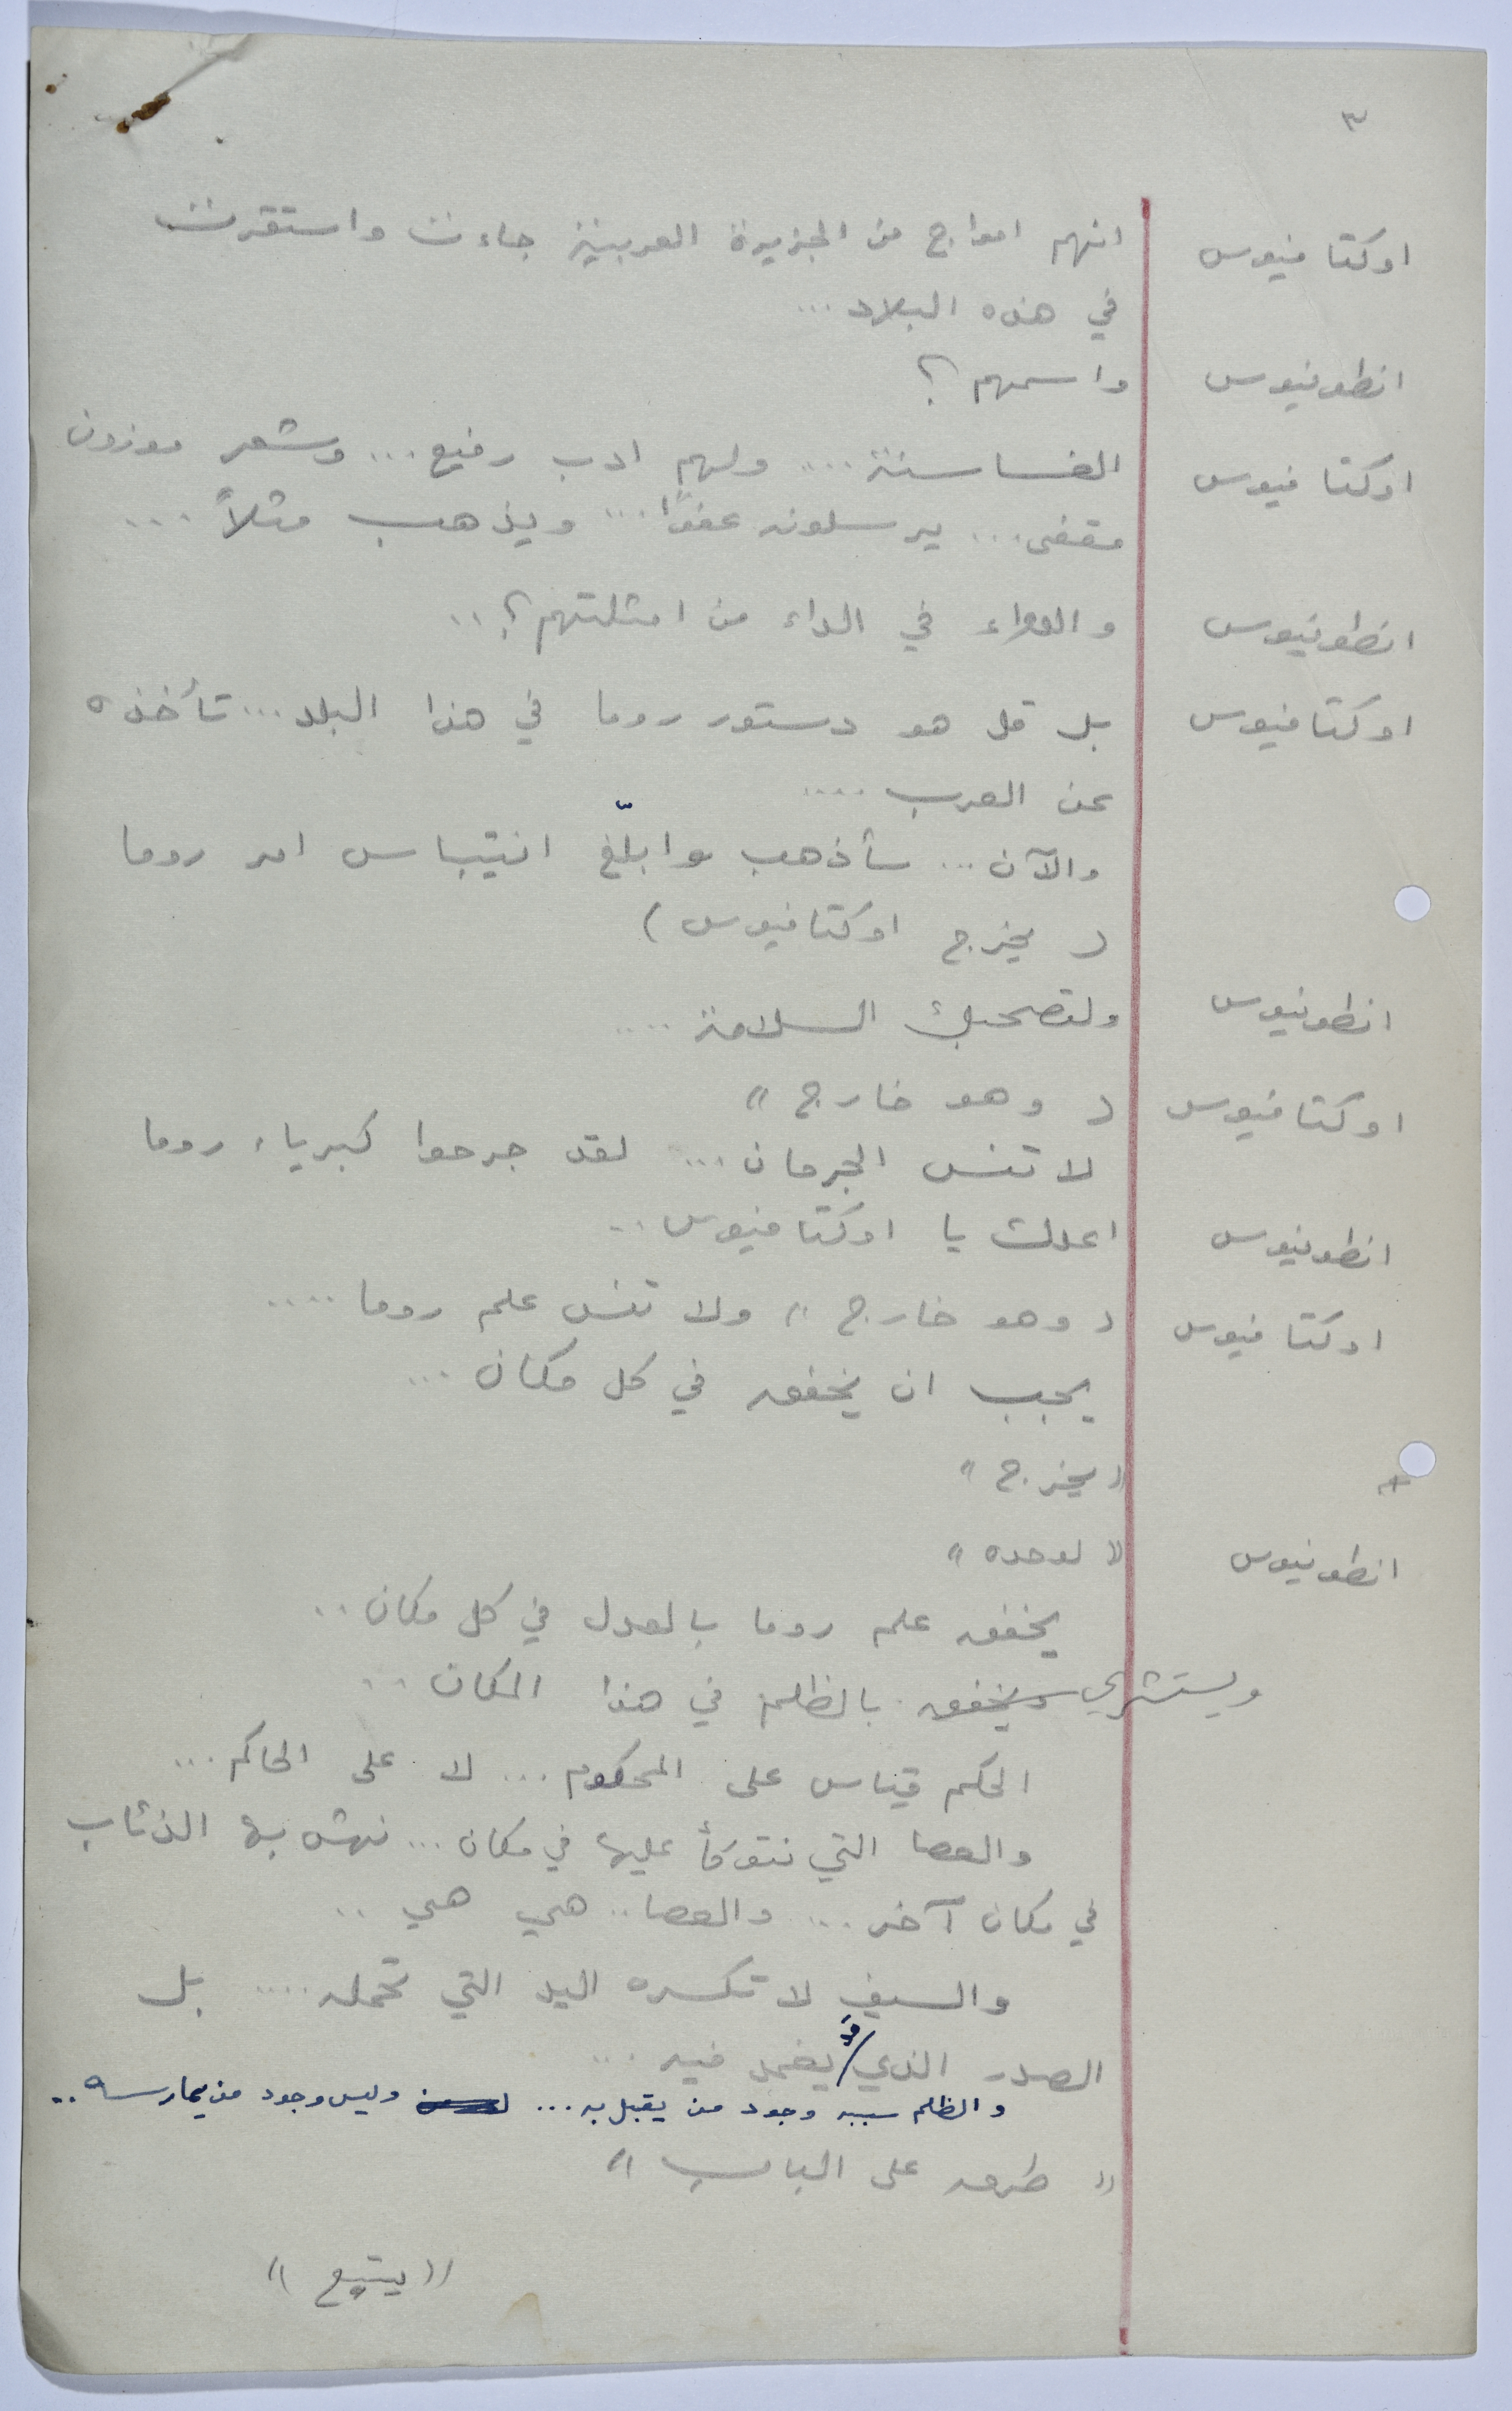 ٣
اوكتافيوس انهم امواج من الجزيرة العربية جاءت واستقرت
في هذه البلاد ...
انطونيوس واسمهم ؟
اوكتافيوس الغساسنة .... ولهم ادب رفيع ... وشعر موزون
مقفى ... يرسلونه عفوًا ... ويذهب مثلاً ...
انطونيوس والدواء في الداء من امثلتهم ؟ ..
اوكتافيوس بل قل هو دستور روما في هذا البلد ... تأخذه
عن العرب ....
والآن ... سأذهب وابلّغ انتيباس امر روما
( يخرج اوكتافيوس )
انطونيوس ولتصحبك السلامة ....
اوكتافيوس ( وهو خارج "
لا تنس الجرمان ... لقد جرحوا كبرياء روما
انطونيوس اعدك يا اوكتافيوس ..
اوكتافيوس ( وهو خارج " ولا تنس علم روما ....
يجب ان يخفق في كل مكان ...
" يخرج "
انطونيوس " لوحده "
يخفق علم روما بالعدل في كل مكان ..
ويستشري ويخفق بالظلم في هذا المكان ..
الحكم قياس على المحكوم ... لا على الحاكم ...
والعصا التي نتوكأ عليها في مكان ... نهش بها الذئاب
في مكان آخر ... والعصا .. هي هي ..
والسيف لا تكسره اليد التي تحمله .... بل
الصدر الذي قد يغمد فيه ...
والظلم سببه وجود من يقبل به ... وليس وجود من يمارسه ..
" طرق على الباب "
" يتبع "